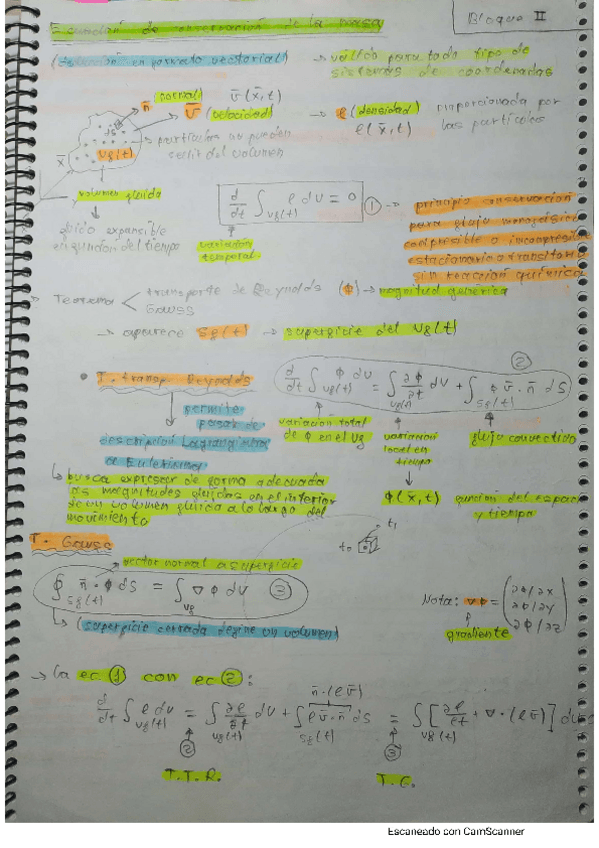 Ecuación de conservación de la masa
Bloque II
(Ecuación en formato vectorial) → válido para todo tipo de sistemas de coordenadas
n̄ (normal) v̄(x̄,t)
v̄ (velocidad) → ρ (densidad) proporcionada por las partículas
ρ(x̄,t)
x̄ Vg(t)
partículas no pueden salir del volumen
volumen fluido
fluido expansible en función del tiempo
d/dt ∫Vg(t) ρ dV = 0 ①
variación temporal
principio conservación para flujo monofásico compresible o incompresible estacionario o transitorio sin reacción química
→ Teorema < transporte de Reynolds (ϕ) → magnitud genérica
Gauss
→ aparece Sg(t) → superficie del Vg(t)
• T. transp. Reynolds
d/dt ∫Vg(t) ϕ dV = ∫Vg(t) ∂ϕ/∂t dV + ∫Sg(t) ϕ v̄ · n̄ dS ②
permite pasar de descripción Lagrangiana a Euleriana
variación total de ϕ en el Vg
variación local en tiempo
flujo convectivo
ϕ(x̄,t) función del espacio y tiempo
↳ busca expresar de forma adecuada las magnitudes fluidas en el interior de un volumen fluido a lo largo del movimiento
t₀ t₁
T. Gauss
vector normal a superficie
∮Sg(t) n̄ · ϕ dS = ∫Vg ∇ϕ dV ③
↳ (superficie cerrada define un volumen)
Nota: ∇ϕ = (∂ϕ/∂x
∂ϕ/∂y
∂ϕ/∂z)
gradiente
→ La ec ① con ec ②:
n̄ · (ρv̄)
d/dt ∫Vg(t) ρ dV = ∫Vg(t) ∂ρ/∂t dV + ∫Sg(t) ρ v̄ · n̄ dS = ∫Vg(t) [∂ρ/∂t + ∇ · (ρv̄)] dV
② ③
T.T.R. T.G.
Escaneado con CamScanner